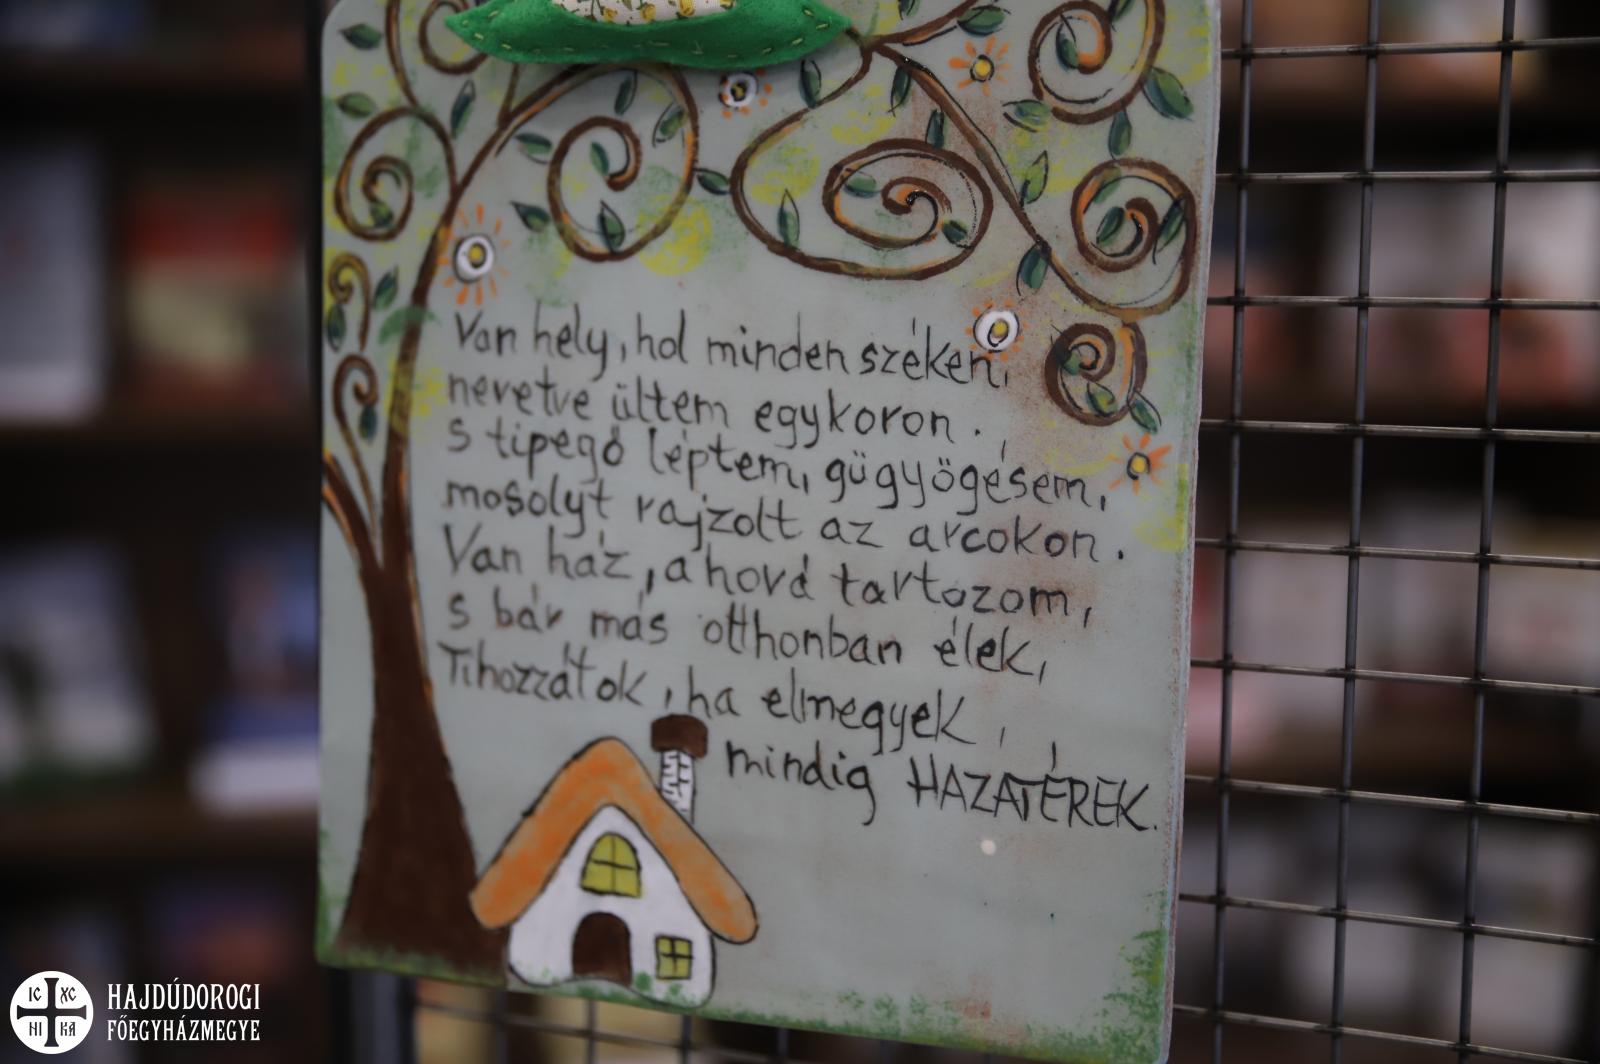 Van hely, hol minden széken,
nevetve ültem egykoron.
s tipegő léptem, gügyögésem,
mosolyt rajzolt az arcokon.
Van ház, ahová tartozom,
s bár más otthonban élek,
Tihozzátok, ha elmegyek,
mindig HAZATÉREK.
IC XC
NI KA
HAJDÚDOROGI
FŐEGYHÁZMEGYE